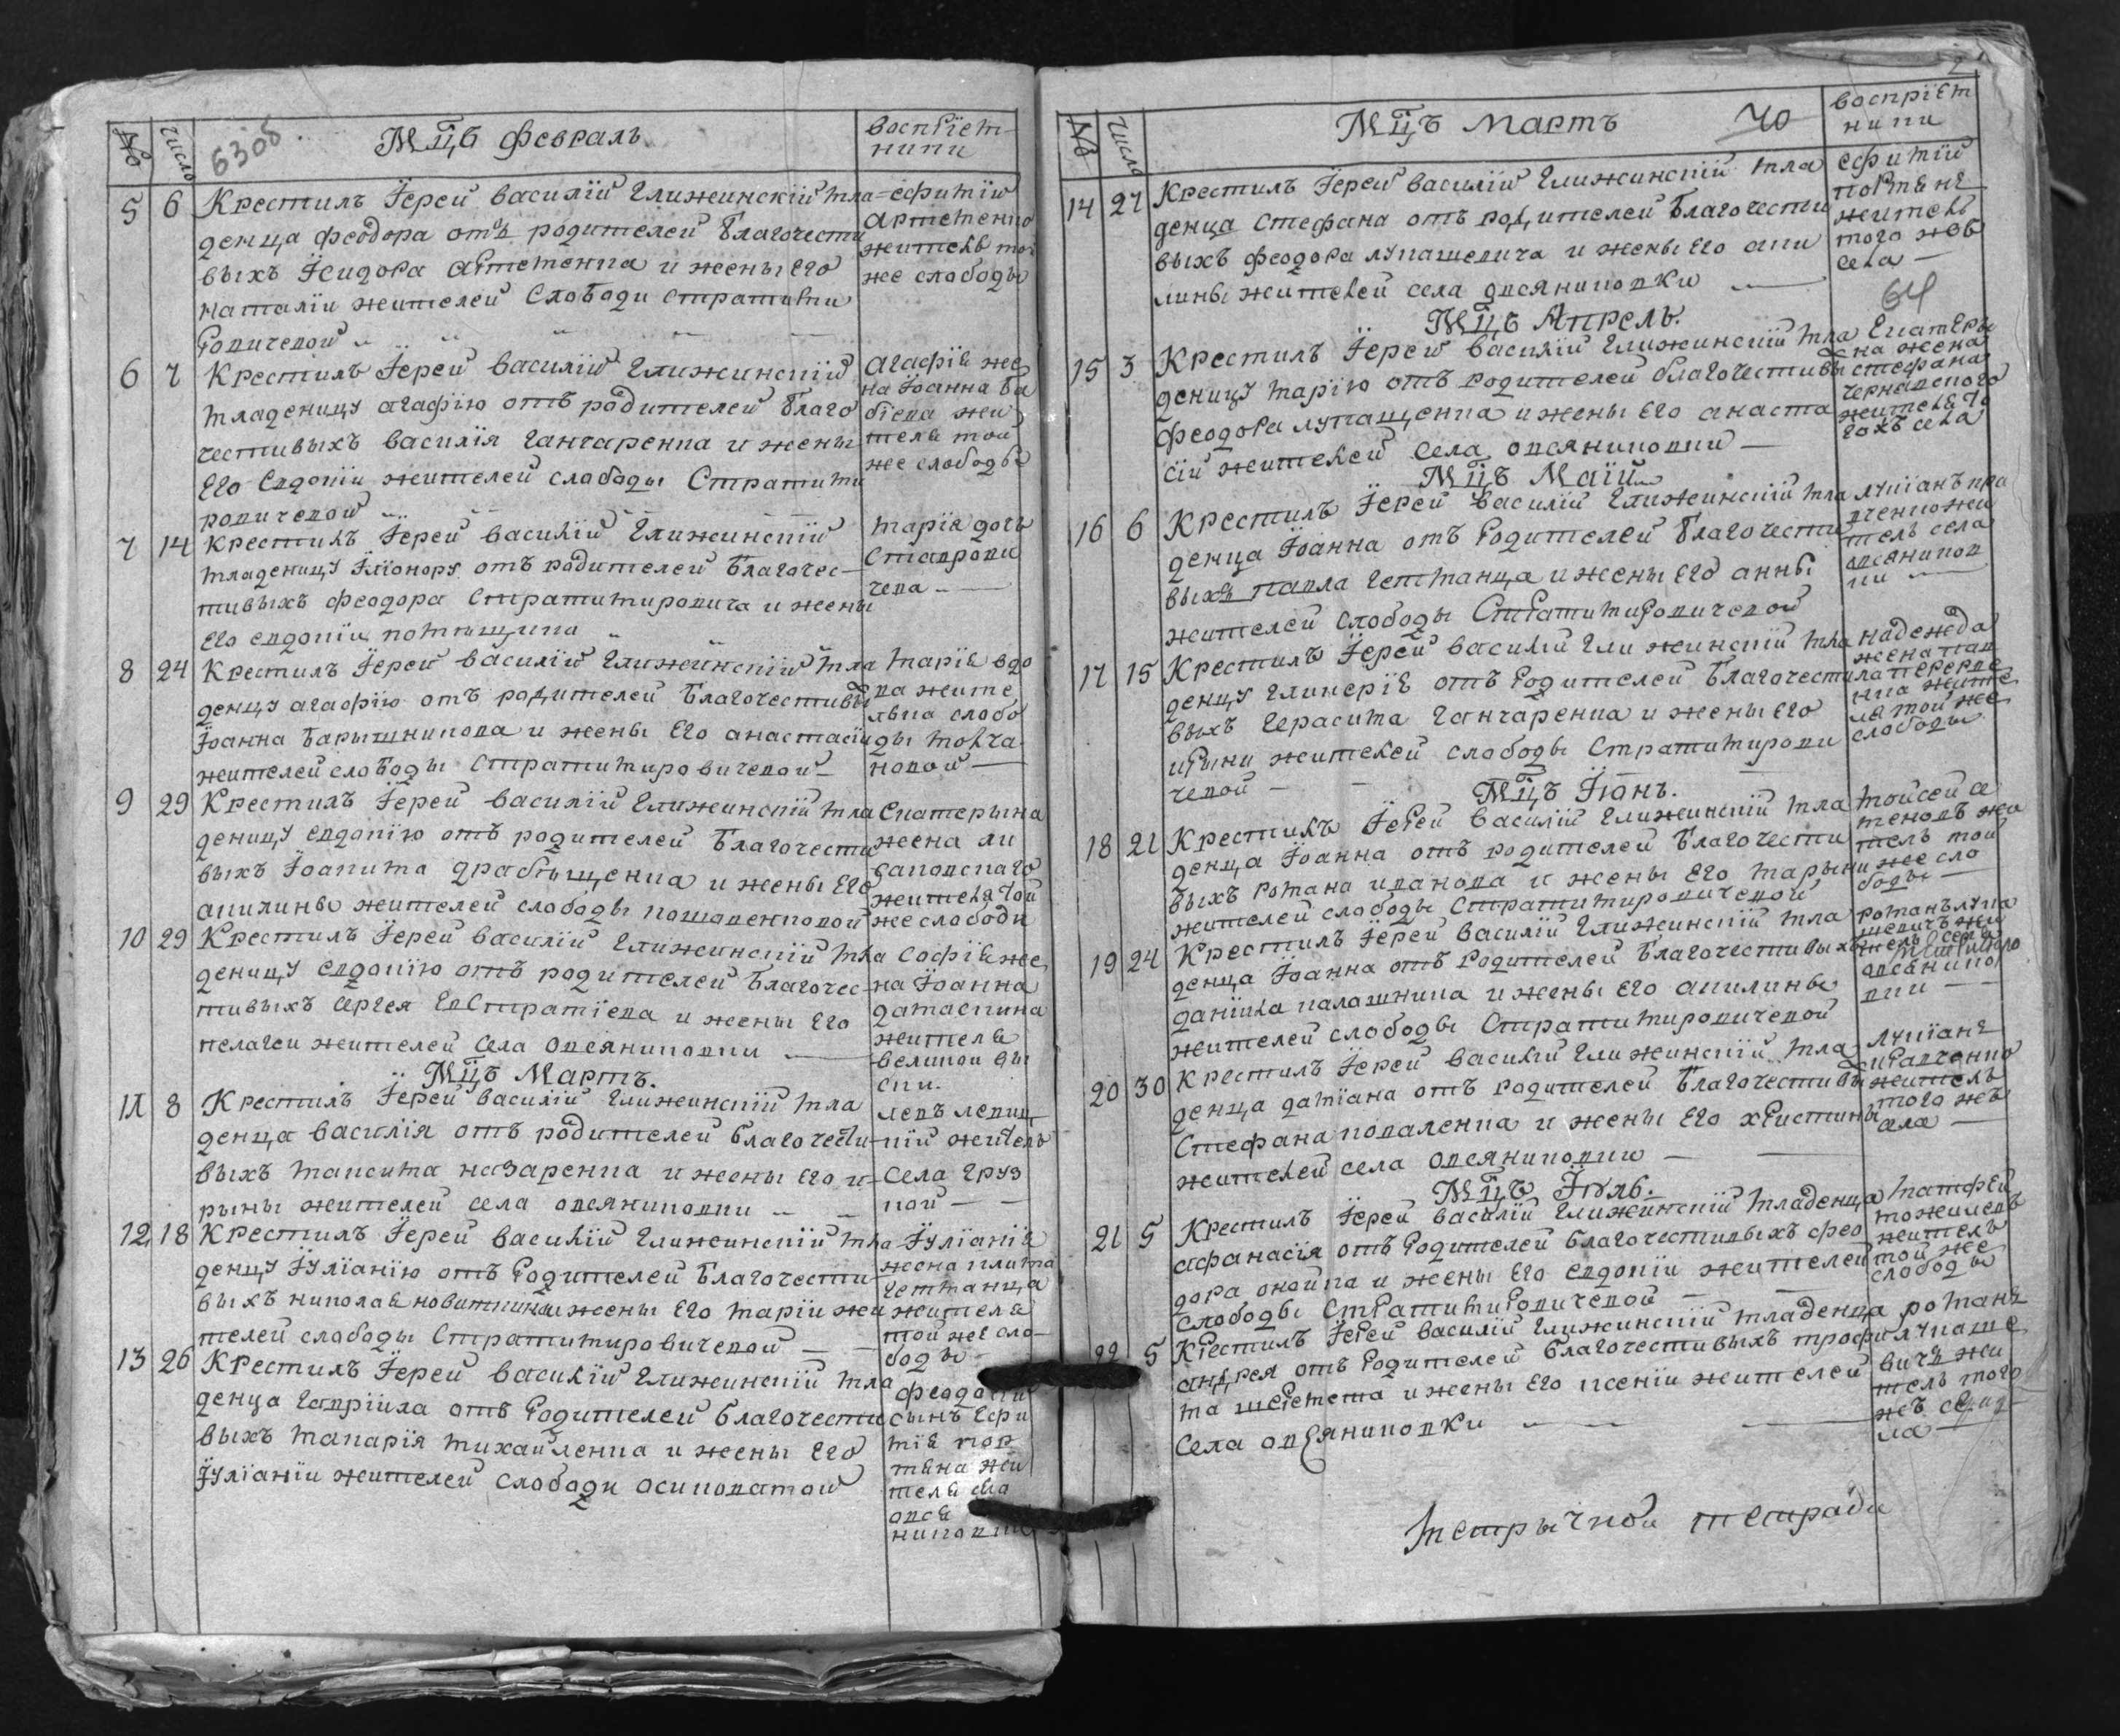 №
число
63об.
Мцъ февраль
воспріем-
ники
5 6 Крестилъ Їерей василій Глижинскій мла-
денца феодора отъ родителей Благочести
выхъ Їсидора артеменка и жены его
наталіи жителей слободи стратими
ровичевой
ефимій
артеменко
житель той
же слободы
6 7 Крестилъ Їерей василій Глижинскій
младеницу агафію отъ родителей Благо
честивыхъ василія ганчаренка и жены
его Евдокіи жителей слабоды Стратими
ровичевой
агафія же
на Їоанна ба
бїева жи
теля той
же слободы
7 14 Крестилъ Їерей василій Глижинскій
младеницу Їліонору отъ родителей Благочес-
тивыхъ феодора Стратимировича и жены
его евдокіи
марія дочь
Ставрови
чева
8 24 Крестилъ Їерей василій Глижинскій мла
денцу агафію отъ родителей Благочестивы
Їоанна Барышникова и жены Его анастасіи
жителей слободы Стратимировичевой
марія вдо
ва жите
лька слобо
ды молча
новой
9 29 Крестилъ Їерей василій Глижинскій мла
деницу евдокію отъ родителей Благочести
выхъ Їоакима драбищенка и жены Его
акилины жителей слободы кошавенковой
Екатерына
жена ли
саковскаго
жителя той
же слободи
10 29 Крестилъ Їерей василій Глижинскій мла
деницу евдокію отъ родителей Благочес-
тивыхъ сергея Евстратїева и жены Его
пелагеи жителей села овсяниковки
софія же
на Їоанна
дамаскина
жителя
великой вы
ски.
Мцъ Мартъ.
11 8 Крестилъ Їерей василій Глижинскій мла
денца василія отъ родителей благочести-
выхъ максима назаренка и жены его и-
рыны жителей села овсяниковки
левъ левиц-
кій житель
села груз
кой
12 18 Крестилъ Їерей василій Глижинскій мла
денцу Їуліанію отъ Родителей Благочести-
выхъ николая новиткина и жены Его маріи жи
телей слободы Стратимировичевой
Їуліанія
жена клима
гетманца
жителя
той же сло-
боды
13 26 Крестилъ Їерей василій Глижинскій мла
денца гавріила отъ Родителей Благочести
выхъ макарія михайленка и жены Его
Їуліаніи жителей слободи осиковатой
феодосій
сынъ Ефи
мія ков
мана жи
теля села
овся
никовки
№
число
Мцъ мартъ
40
воспріем
ники
14 27 Крестилъ Їерей василій Глижинскій мла
денца стефана отъ родителей Благочести
выхъ феодора лупашевича и жены Его аки
лины жителей села овсяниковки
ефимій
житель
того жъ
села
64
Мцъ Апрель.
15 3 Крестилъ Їерей василій Глижинскій мла
деницу марію отъ родителей благочестивы
феодора лупащенка и жены Его анаста
сіи жителей села овсяниковки
Екатеры
на жена
стефана
чернавского
жителя то
гожъ села
Мцъ Маій
16 6 Крестилъ Їерей василій Глижинскій мла
денца Їоанна отъ Родителей Благочести
выхъ павла гетманца и жены Его анны
жителей слободы Стратимировичевой
лукіанъ кра
вченко жи
тель села
овсяников
ки
17 15 Крестилъ Їерей василій Глижинскій мла
денцу гликерія отъ Родителей Благочести
выхъ герасима ганчаренка и жены Его
ирыни жителей слободы Стратимирови
чевой
надежда
жена пав
ла
нка жите
ля той же
слободы
Мцъ Їюнь.
18 21 Крестилъ Їерей василій Глижинскій мла
денца Їоанна отъ родителей Благочести
выхъ романа иванова и жены Его марыни
жителей слободы Стратимировичевой
моисей се
меновъ жи
тель той
же сло
боды
19 24 Крестилъ Їерей василій Глижинскій мла
денца Їоанна отъ Родителей Благочестивыхъ
даніила калашника и жены Его акилины
жителей слободы Стратимировичевой
романъ лупа
шевичъ жи
тель села
овсянико
вки
20 30 Крестилъ Їерей василій Глижинскій мла
денца даміана отъ родителей Благочестивы
Стефана коваленка и жены Его христины
жителей села овсяниковки
лукіанъ
кравченко
житель
того жъ
села
Мцъ Їюль.
21 5 Крестилъ Їерей василій Глижинскій младенца
афанасія отъ Родителей Благочестивыхъ фео
дора окойна и жены Его евдокіи жителей
слободы Стратимировичевой
матфей
житель
той же
слободы
22 5 Крестилъ Їерей василій Глижинскій младенца
андрея отъ Родителей Благочестивыхъ трофи
ма шеремета и жены Его ксеніи жителей
села овсяниковки
романъ
лупаше
вичъ жи
тель того
жъ
метрычной тетради